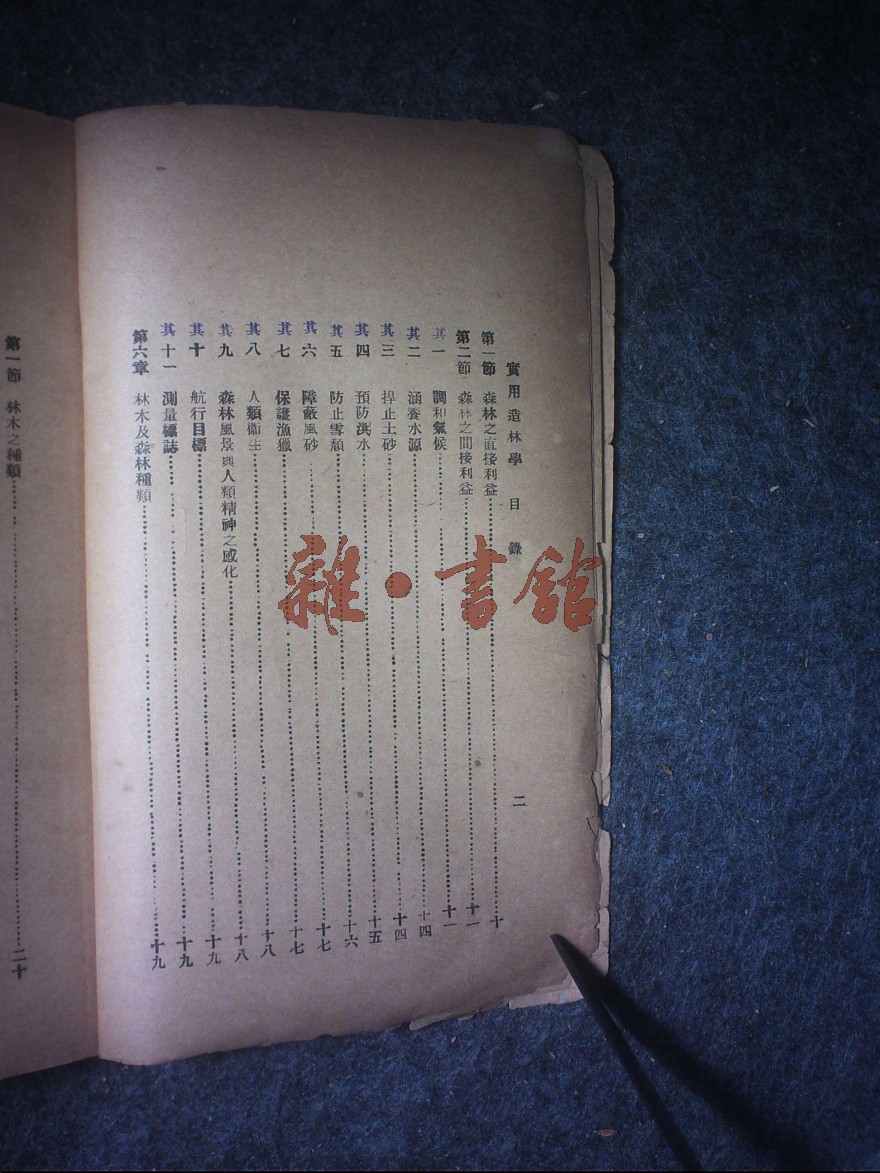 實用造林學 目錄 二
第一節 森林之直接利益 十
第二節 森林之間接利益 十一
其一 調和氣候 十一
其二 涵養水源 十四
其三 捍止土砂 十四
其四 預防洪水 十五
其五 防止雪頹 十六
其六 障蔽風砂 十七
其七 保護漁獵 十七
其八 人類衞生 十八
其九 森林風景與人類精神之感化 十九
其十 航行目標 十九
其十一 測量標誌 十九
第六章 林木及森林種類
第一節 林木之種類 二十
雜·書館